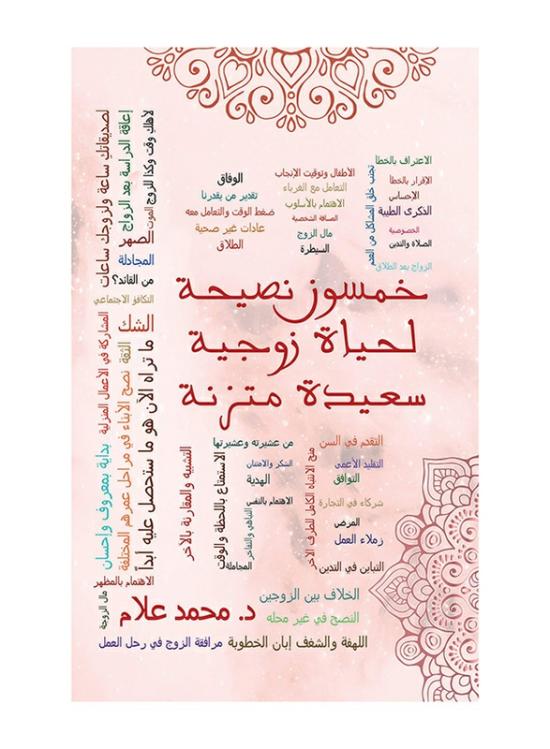 الاعتراف بالخطأ
الإقرار بالخطأ
الإحساس
الذكرى الطيبة
الخصوصية
الصلاة والتدين
الزواج بعد الطلاق
تجنب خلق المشاكل من العدم
الأطفال وتوقيت الإنجاب
التعامل مع الغرباء
الاهتمام بالأسلوب
المسافة الشخصية
مال الزوج
السيطرة
الوفاق
تقدير من يقدرنا
ضغط الوقت والتعامل معه
عادات غير صحية
الطلاق
لأهلك وقت وكذا للزوج
الموت
إعاقة الدراسة بعد الزواج
لصديقاتك ساعة ولزوجك ساعات
الصهر
المجادلة
من القائد؟
التكافؤ الاجتماعي
خمسون نصيحة
لحياة زوجية
سعيدة متزنة
الشك
الثقة
ما تراه الآن هو ما ستحصل عليه أبداً
نصح الأبناء في مراحل عمرهم المختلفة
المشاركة في الأعمال المنزلية
بداية بمعروف وإحسان
التقدم في السن
التقليد الأعمى
التوافق
شركاء في التجارة
المرض
زملاء العمل
التباين في التدين
منح الانتباه الكامل للطرف الآخر
من عشيرته وعشيرتها
الشكر والامتنان
الهدية
الاهتمام بالنفس
التباهي والتفاخر
المجاملة
الاستمتاع باللحظة والوقت
التشبيه والمقارنة بالآخر
الاهتمام بالمظهر
مال الزوجة
الخلاف بين الزوجين
د. محمد علام
النصح في غير محله
اللهفة والشغف إبان الخطوبة
مرافقة الزوج في رحل العمل